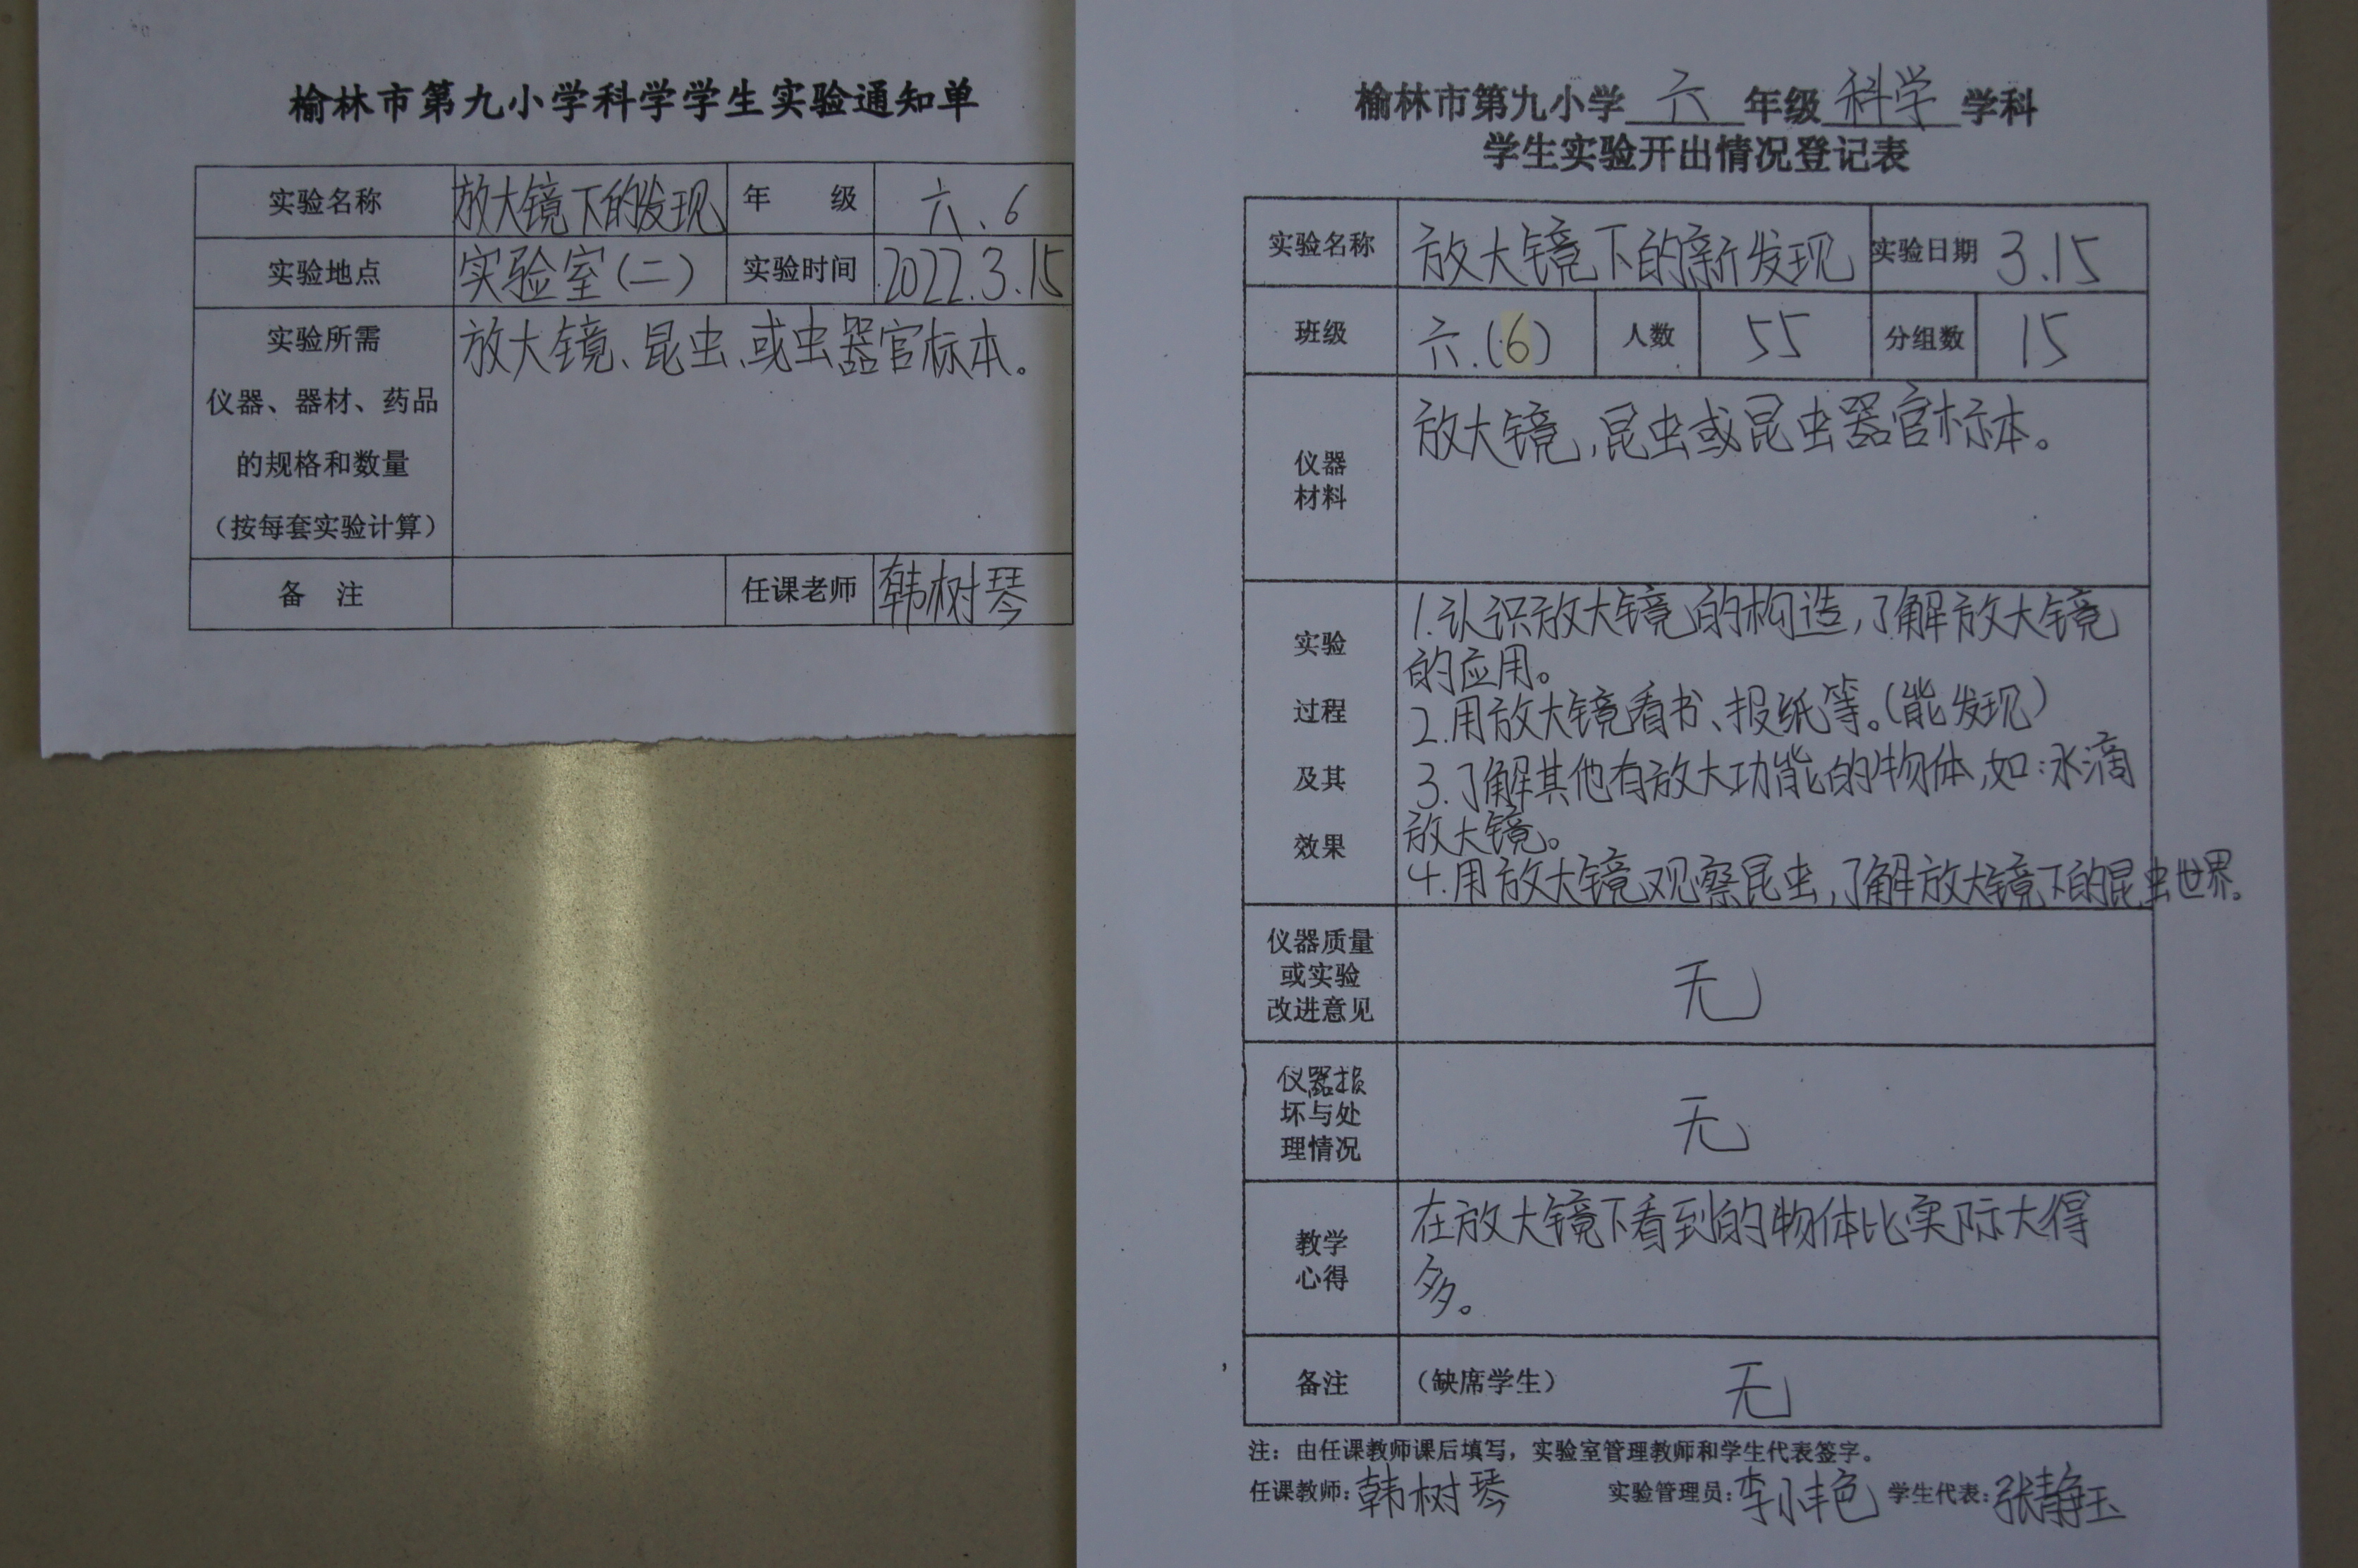 榆林市第九小学科学学生实验通知单
实验名称 放大镜下的发现 年 级 六、6
实验地点 实验室(二) 实验时间 2022.3.15
实验所需
仪器、器材、药品
的规格和数量
（按每套实验计算）
放大镜、昆虫、或虫器官标本。
备 注 任课老师 韩树琴
榆林市第九小学 六 年级 科学 学科
学生实验开出情况登记表
实验名称 放大镜下的新发现 实验日期 3.15
班级 六.(6) 人数 55 分组数 15
仪器
材料
放大镜,昆虫或昆虫器官标本。
实验
过程
及其
效果
1.认识放大镜的构造,了解放大镜
的应用。
2.用放大镜看书、报纸等。(能发现)
3.了解其他有放大功能的物体,如:水滴
放大镜。
4.用放大镜观察昆虫,了解放大镜下的昆虫世界。
仪器质量
或实验
改进意见
无
仪器损
坏与处
理情况
无
教学
心得
在放大镜下看到的物体比实际大得
多。
备注 （缺席学生） 无
注：由任课教师课后填写，实验室管理教师和学生代表签字。
任课教师:韩树琴 实验管理员:李小艳 学生代表:张静玉